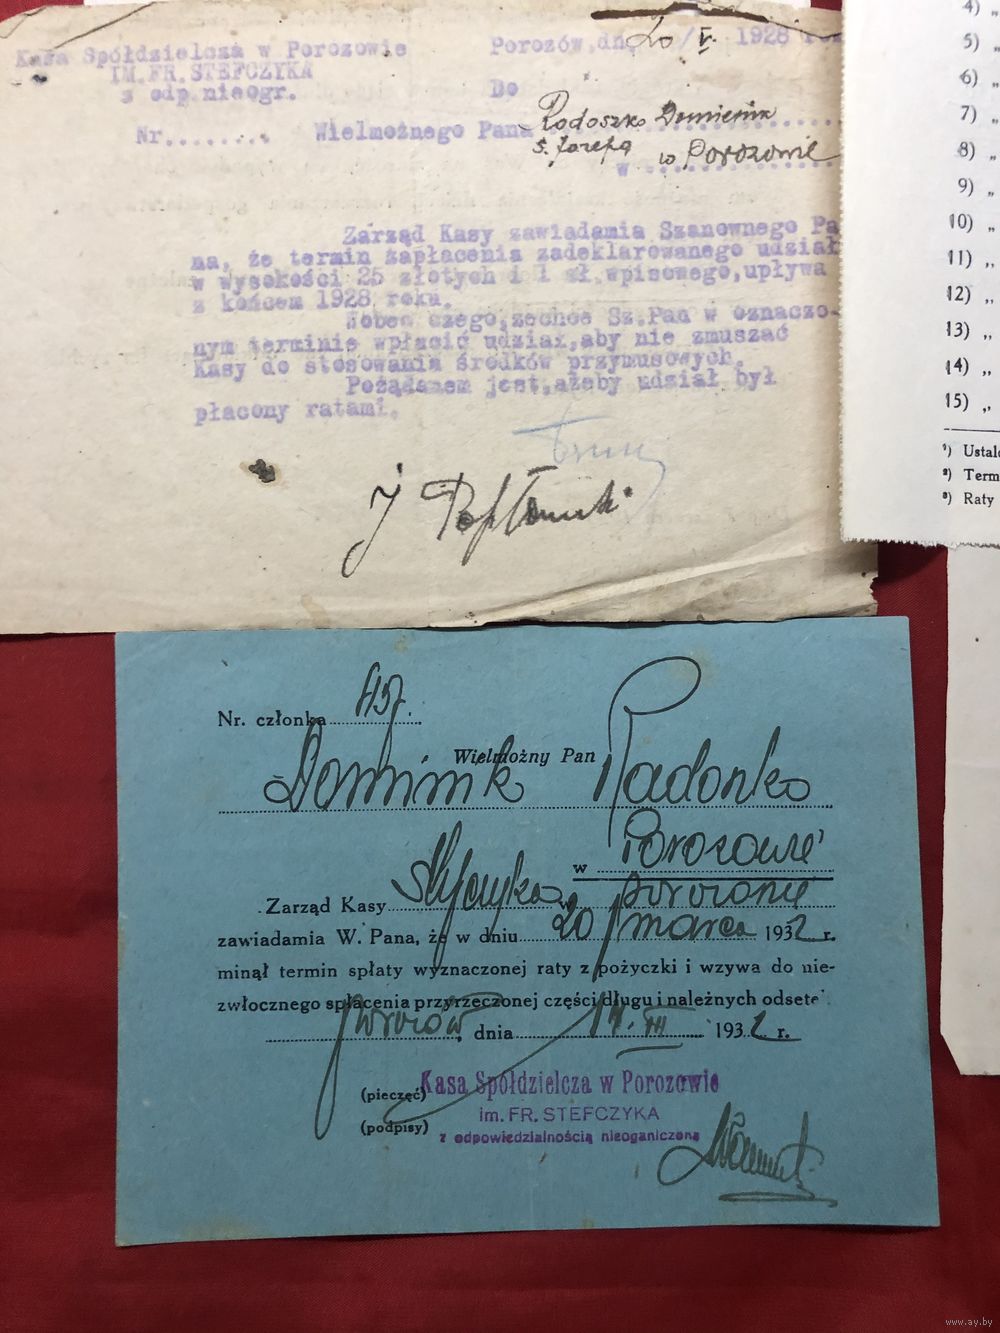 Kasa Spółdzielcza w Porozowie
IM.FR.STEFCZYKA
z odp.nieogr.
Porozów, dn. 20/V. 1928 roku
Do
Nr........ Wielmożnego Pana Radoszko Dominik
s. Józefa w Porozowie
w
Zarząd Kasy zawiadamia Szanownego Pa
na, że termin zapłacenia zadeklarowanego udział
w wysokości 25 złotych i 1 zł.wpisowego,upływa
z końcem 1928 roku.
Wobec czego,zechce Sz.Pan w oznaczo-
nym terminie wpłacić udział,aby nie zmuszać
Kasy do stosowania środków przymusowych.
Pożądanem jest,ażeby udział był
płacony ratami.
4) „
5) „
6) „
7) „
8) „
9) „
10) „
11) „
12) „
13) „
14) „
15) „
¹) Ustal
²) Term
³) Raty
Nr. członka 457.
Wielmożny Pan
Dominik Radoszko
w Porozowie
Zarząd Kasy Stefczyka w Porozowie
zawiadamia W. Pana, że w dniu 20 marca 1932 r.
minął termin spłaty wyznaczonej raty z pożyczki i wzywa do nie-
zwłocznego spłacenia przyrzeczonej części długu i należnych odsete
Porozów, dnia 17. III 1932 r.
(pieczęć) Kasa Spółdzielcza w Porozowie
im. FR. STEFCZYKA
(podpisy) z odpowiedzialnością nieoganiczoną
www.ay.by